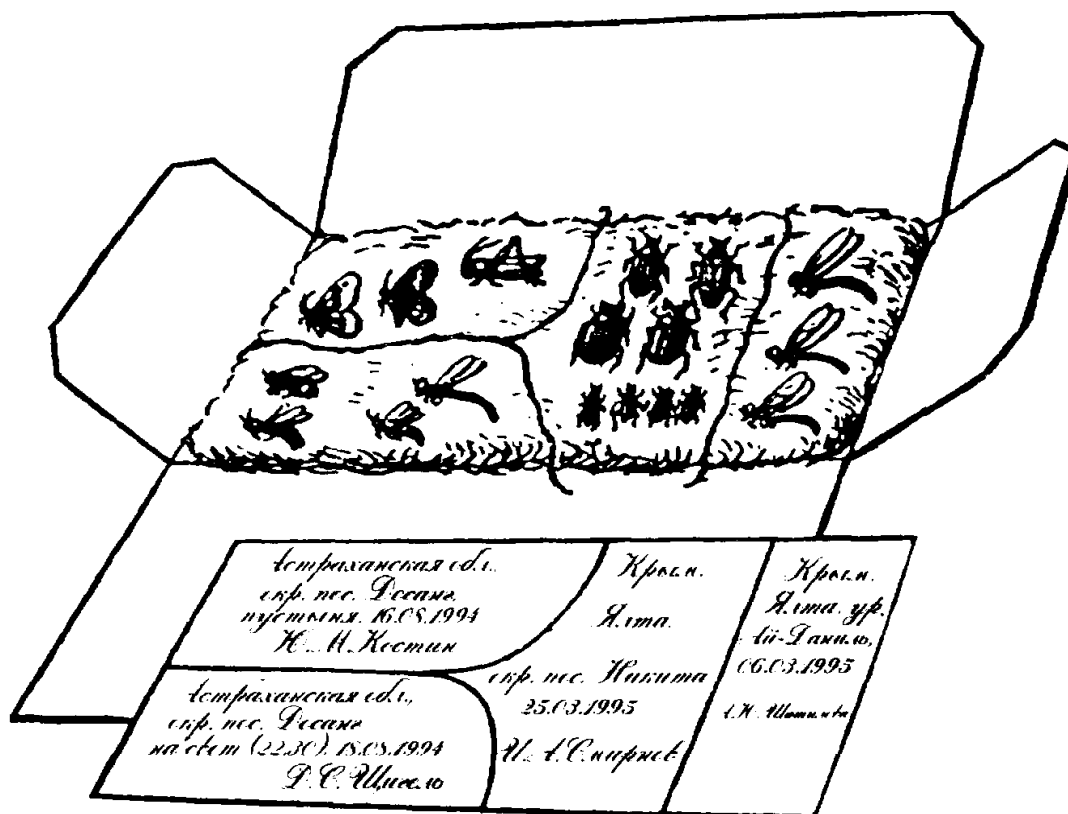 Астраханская обл.,
окр. пос. Досанг,
пустыня. 16.08.1994
Ю. М. Костин
Астраханская обл.,
окр. пос. Досанг
на свет (22.30). 18.08.1994
Д. С. Щигель
Крым.
Ялта.
окр. пос. Никита
25.03.1995
И. А. Смирнов
Крым.
Ялта. ур.
Ай-Даниль,
06.03.1995